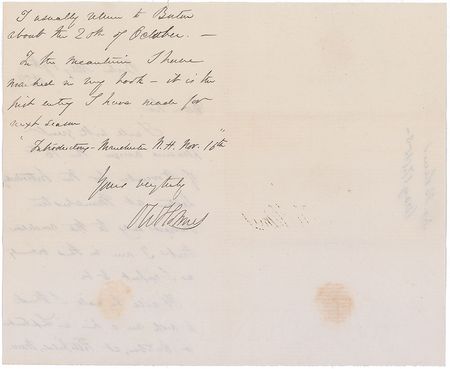 I usually return to Boston
about the 20th of October. —
In the meantime I have
marked in my book — it is the
first entry I have made for
next season
"Introductory - Manchester N.H. Nov. 10th"
Yours very truly
O W Holmes